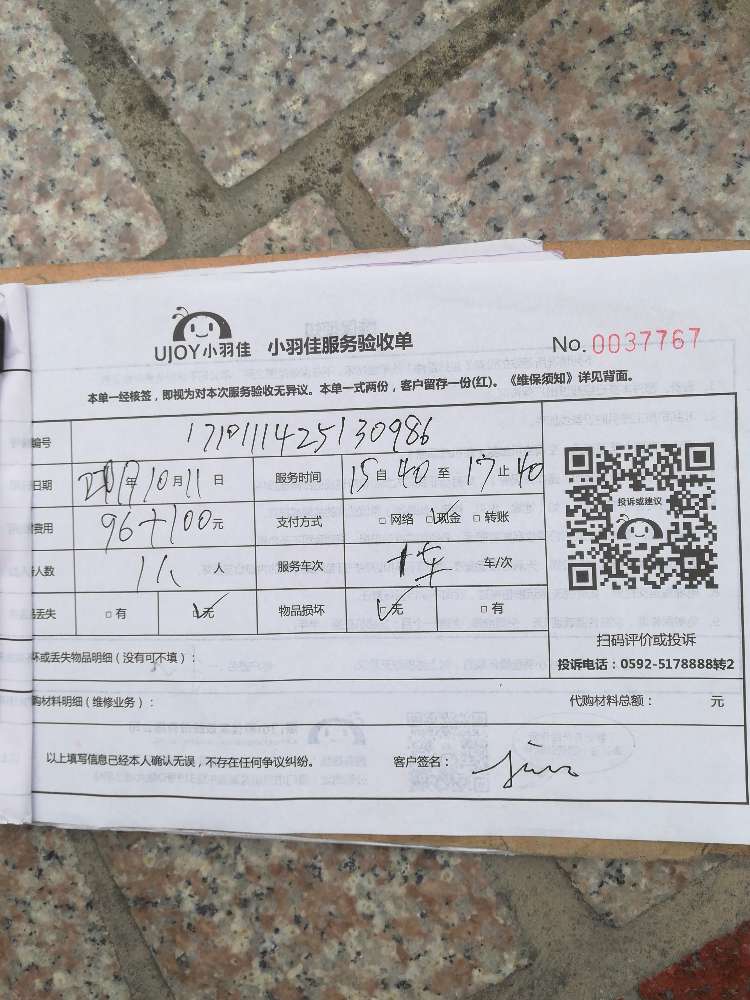 UJOY小羽佳 小羽佳服务验收单 No. 0037767
本单一经核签，即视为对本次服务验收无异议。本单一式两份，客户留存一份(红)。《维保须知》详见背面。
编号 1710111425130986
日期 2017年10月11日 服务时间 15自40至17止40
费用 96+100元 支付方式 □网络 □现金 □转账
人数 1人 人 服务车次 1车 车/次
丢失 □有 □无 物品损坏 □无 □有
投诉或建议
扫码评价或投诉
投诉电话：0592-5178888转2
坏或丢失物品明细（没有可不填）：
购材料明细（维修业务）： 代购材料总额： 元
以上填写信息已经本人确认无误，不存在任何争议纠纷。 客户签名：